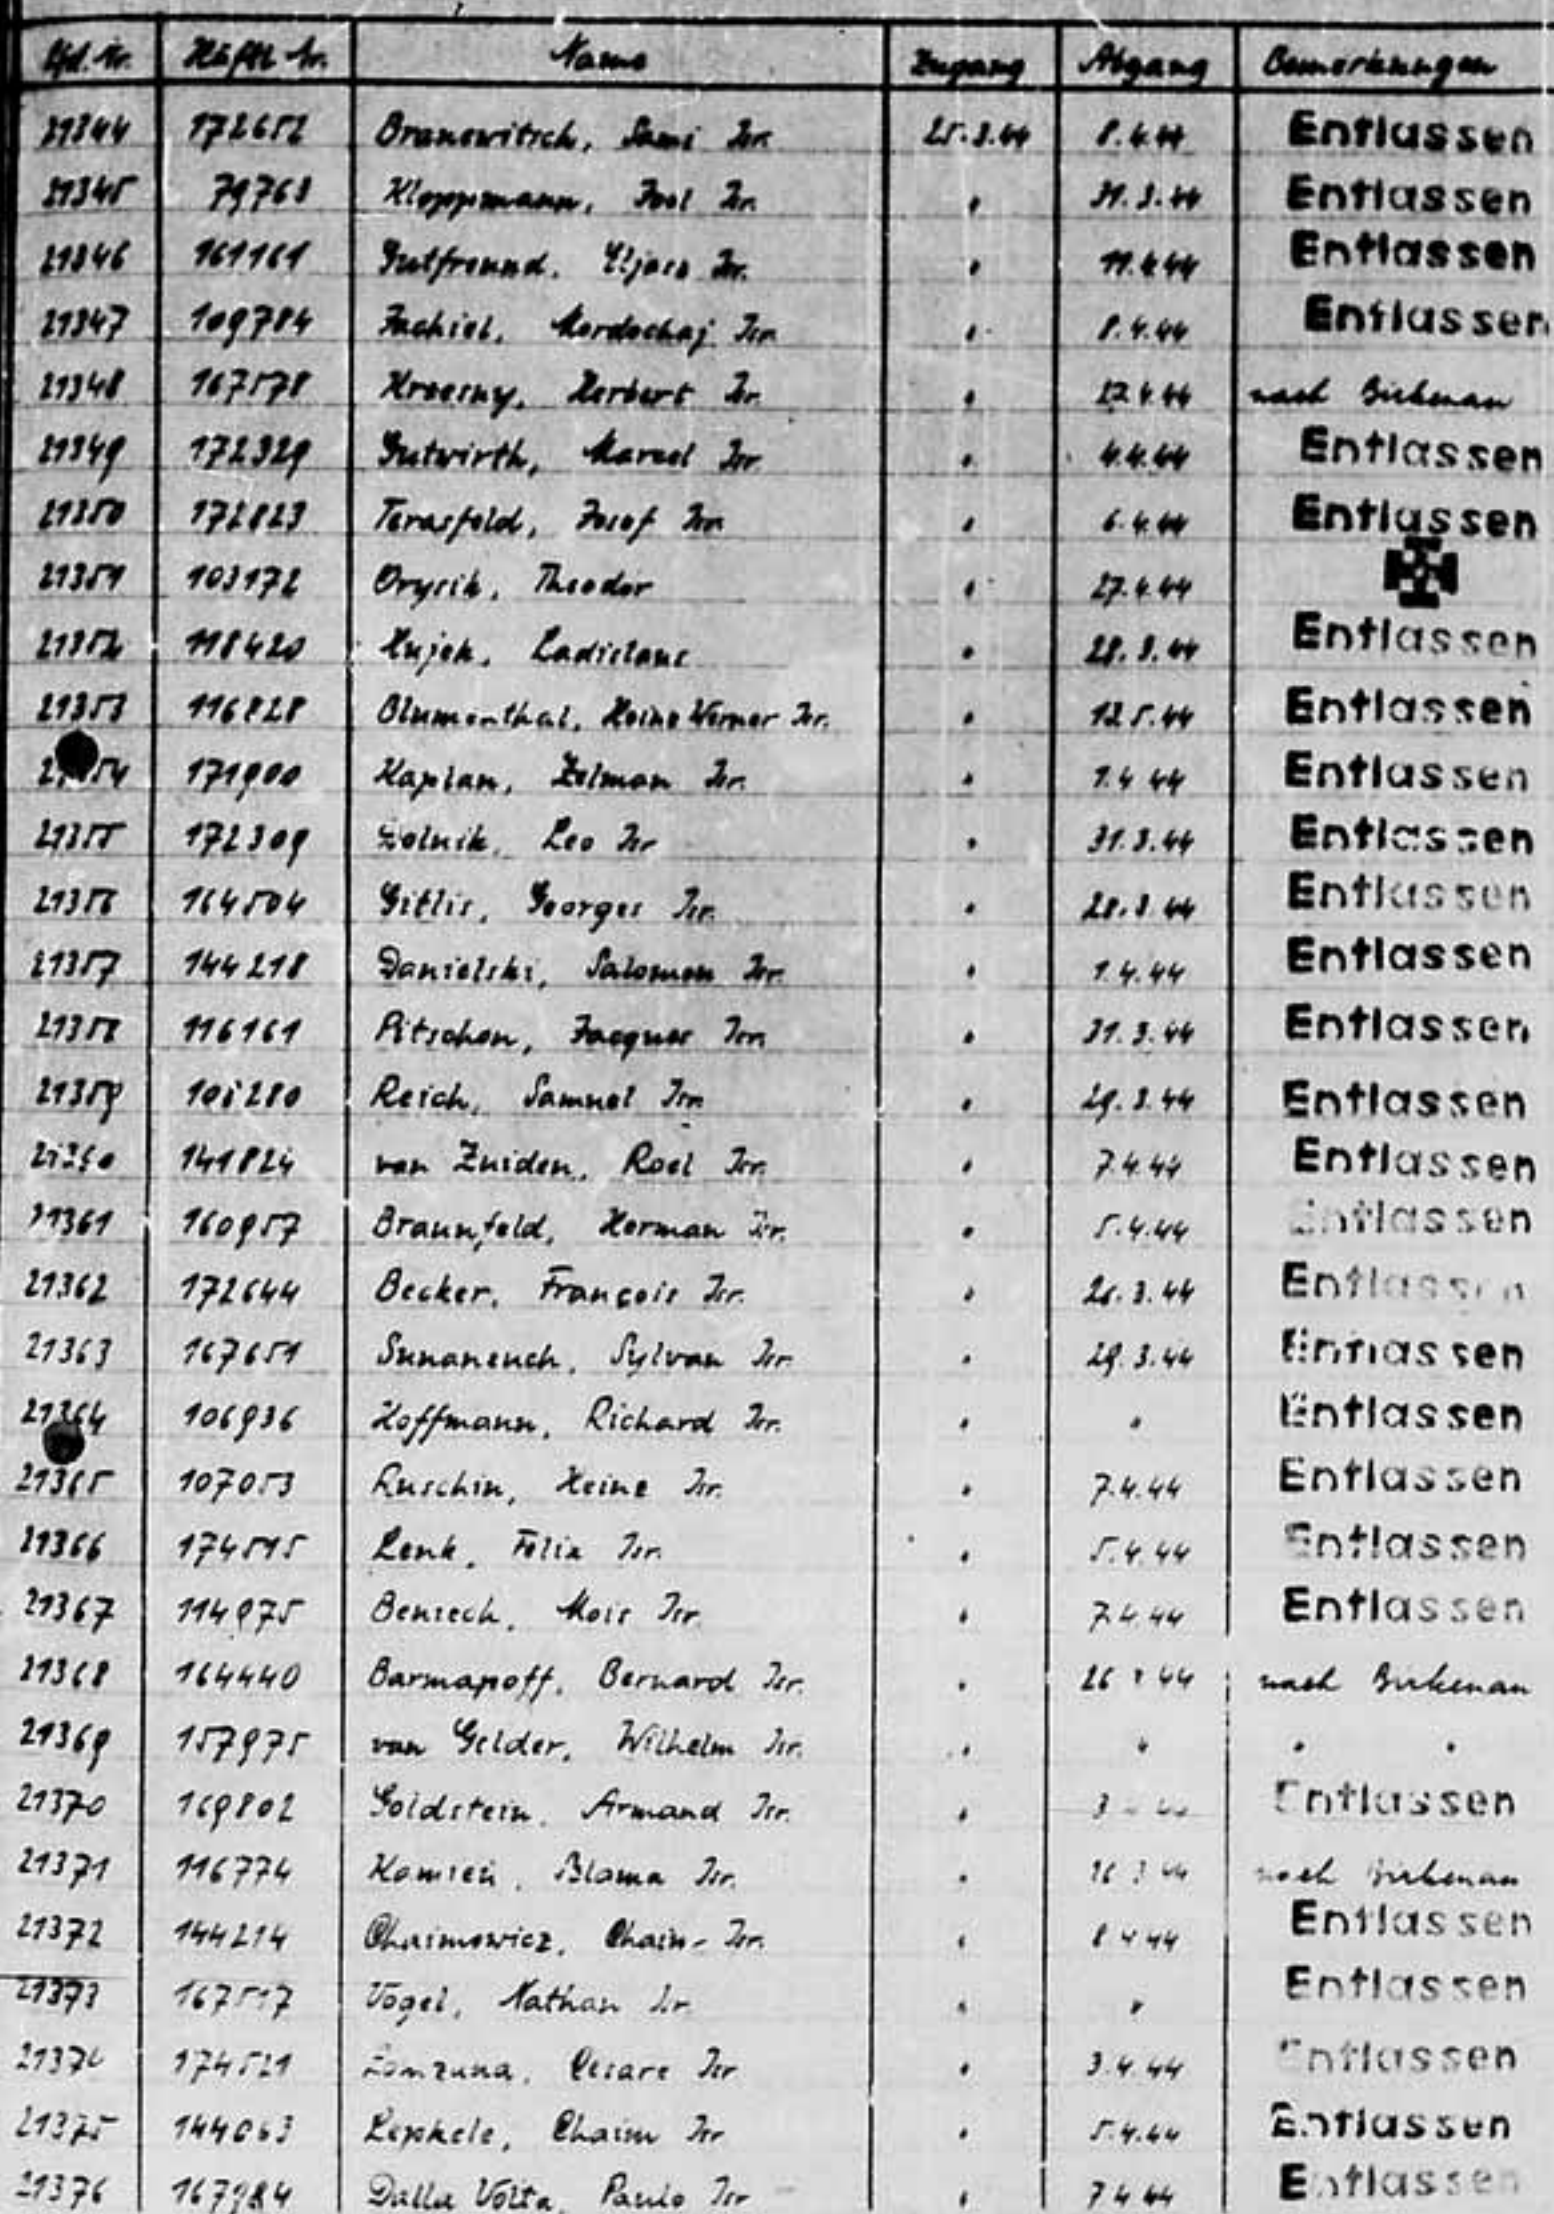 Lfd. Nr. Häftl Nr. Name Zugang Abgang Bemerkungen
21344 172652 Branowitsch, Sami Isr. 25.3.44 8.4.44 Entlassen
21345 79763 Kloppmann, Isr. " 31.3.44 Entlassen
21346 161161 Gutfreund, Isr. " 11.4.44 Entlassen
21347 109784 Jachiel, Mordochaj Isr. " 8.4.44 Entlassen
21348 167578 Herbert Isr. " nach Birkenau
21349 172329 Gutwirth, Marcel Isr. " 4.4.44 Entlassen
21350 172823 Josef Isr. " 6.4.44 Entlassen
21351 103172 Theodor " 27.4.44
21352 118420 Ladislaus " 28.3.44 Entlassen
21353 116828 Blumenthal, Heinz Werner Isr. " 12.5.44 Entlassen
171900 Kaplan, Zelman Isr. " 1.4.44 Entlassen
21355 172309 Zolnik, Leo Isr. " 31.3.44 Entlassen
21356 164504 Gitlis, Georges Isr. " 28.3.44 Entlassen
21357 144218 Danielski, Salomon Isr. " 1.4.44 Entlassen
21358 116161 Pitschon, Jacques Isr. " 31.3.44 Entlassen
21359 Reich, Samuel Isr. " 29.3.44 Entlassen
21360 141824 van Zuiden, Roel Isr. " 7.4.44 Entlassen
21361 160957 Braunfeld, Herman Isr. " 5.4.44 Entlassen
21362 172644 Becker, François Isr. " Entlassen
21363 167651 Sylvan Isr. " 29.3.44 Entlassen
21364 106936 Hoffmann, Richard Isr. " " Entlassen
21365 107053 Ruschin, Heinz Isr. " 7.4.44 Entlassen
21366 174515 Lenk, Felix Isr. " 5.4.44 Entlassen
21367 114975 Mois Isr. " 7.4.44 Entlassen
21368 164440 Barmapoff, Bernard Isr. " nach Birkenau
21369 157975 van Gelder, Wilhelm Isr. " " " "
21370 169802 Goldstein, Armand Isr. " Entlassen
21371 116774 Blama Isr. " nach Birkenau
21372 144214 Chaimowicz, Chaim- Isr. " 8.4.44 Entlassen
21373 Vogel, Nathan Isr. " " Entlassen
174521 Cesare Isr. " 3.4.44 Entlassen
21375 144063 Lepkele, Chaim Isr. " 5.4.44 Entlassen
21376 167984 Dalla Volta, Paulo Isr. " 7.4.44 Entlassen